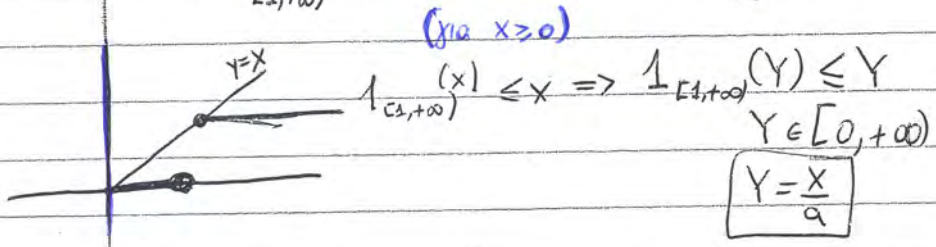 [1,+∞)
(για x≥0)
y=x
1_{[1,+∞)}(x) ≤ x => 1_{[1,+∞)}(Y) ≤ Y
Y ∈ [0,+∞)
Y = x/a